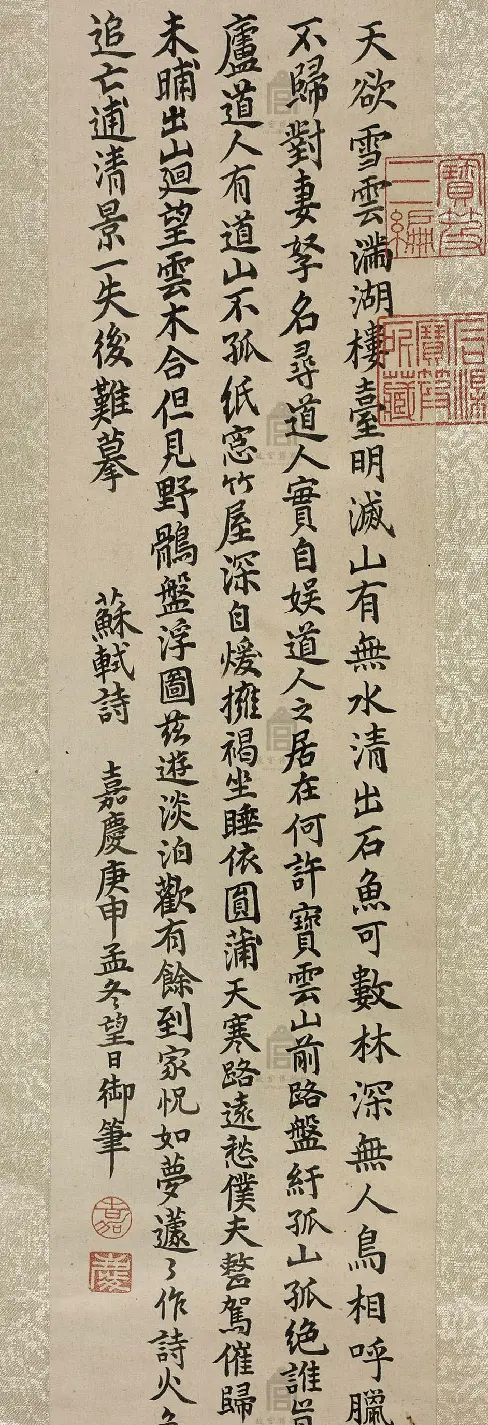 寶笈
三編
石渠
寶笈
所藏
天欲雪雲滿湖樓臺明滅山有無水清出石魚可數林深無人鳥相呼臘
不歸對妻孥名尋道人實自娛道人之居在何許寶雲山前路盤紆孤山孤絕誰肯
廬道人有道山不孤紙窓竹屋深自煖擁褐坐睡依圓蒲天寒路遠愁僕夫整駕催歸
未晡出山廻望雲木合但見野鶻盤浮圖茲遊淡泊歡有餘到家怳如夢蘧々作詩火急
追亡逋清景一失後難摹 蘇軾詩 嘉慶庚申孟冬望日御筆
嘉
慶